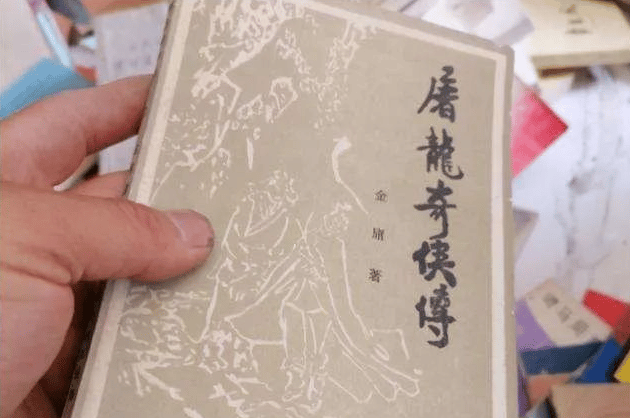 屠龍奇俠傳
金庸著